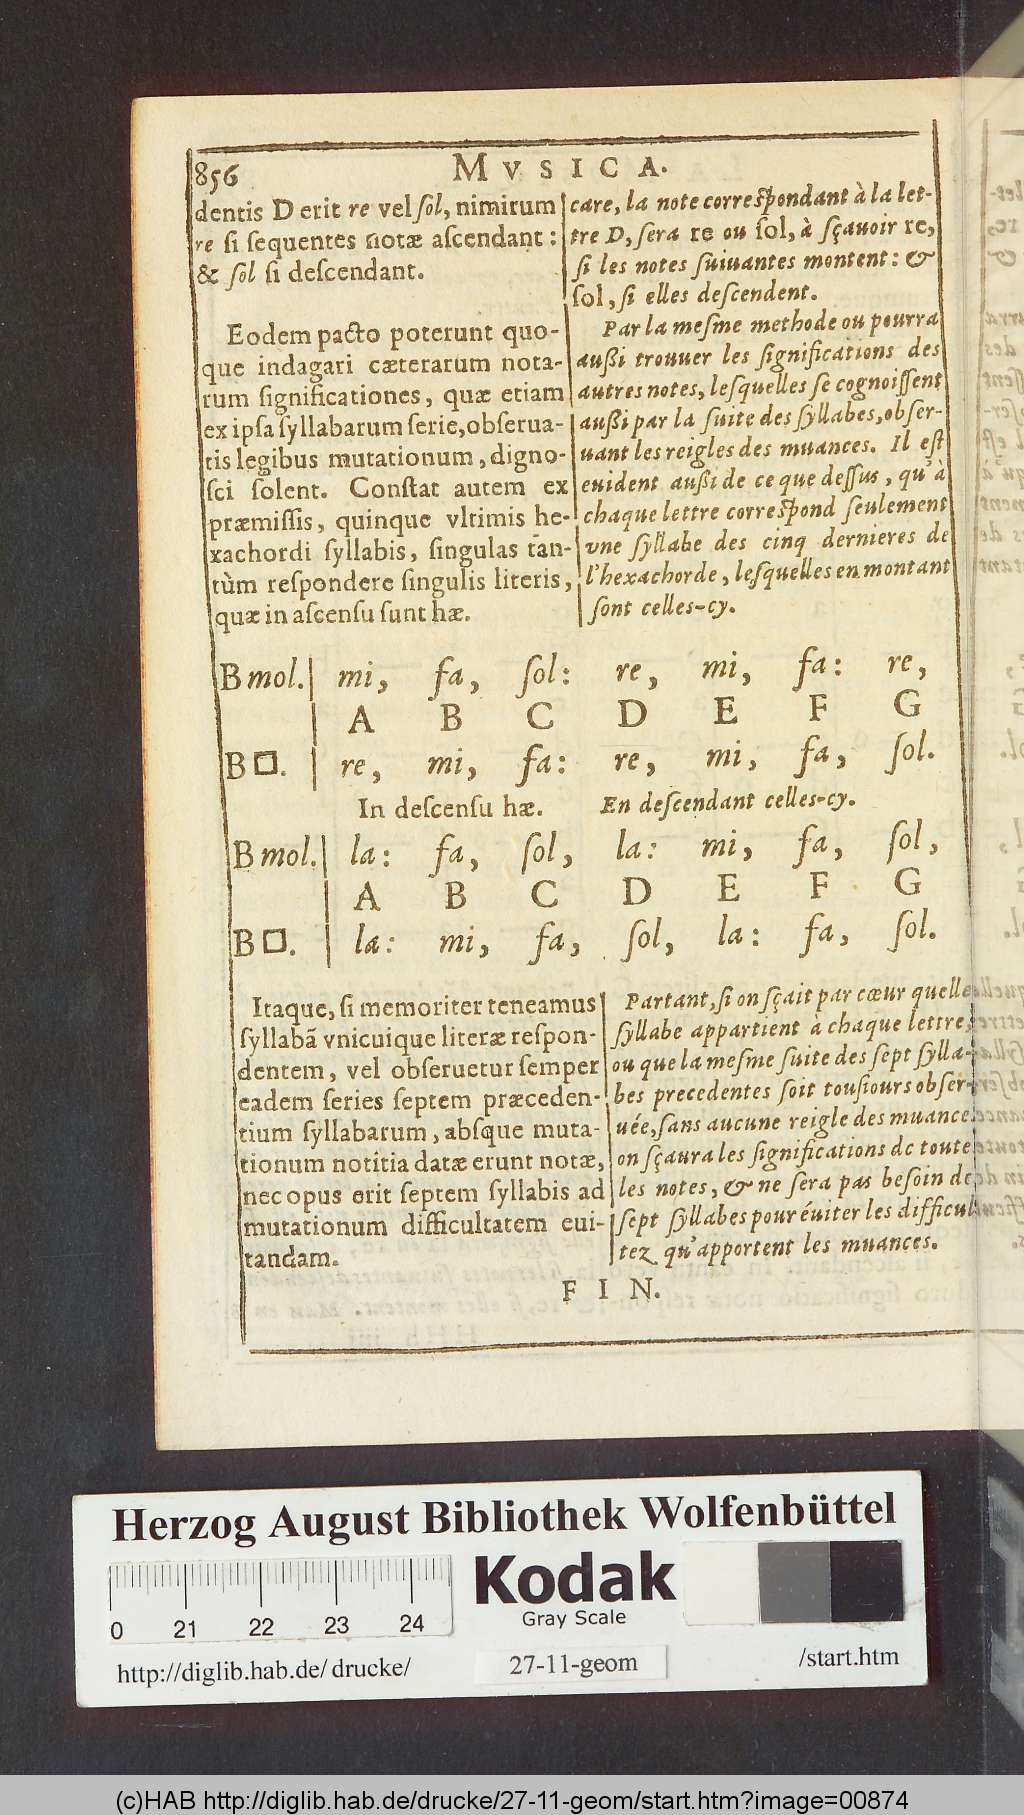 856
MVSICA.
dentis D erit re vel ſol, nimirum
re ſi ſequentes notæ aſcendant:
& ſol ſi deſcendant.
Eodem pacto poterunt quo-
que indagari cæterarum nota-
rum ſignificationes, quæ etiam
ex ipſa ſyllabarum ſerie, obſerua-
tis legibus mutationum, digno-
ſci ſolent. Conſtat autem ex
præmiſſis, quinque vltimis he-
xachordi ſyllabis, ſingulas tan-
tùm reſpondere ſingulis literis,
quæ in aſcenſu ſunt hæ.
care, la note correſpondant à la let-
tre D, ſera re ou ſol, à ſçauoir re,
ſi les notes ſuiuantes montent: &
ſol, ſi elles deſcendent.
Par la meſme methode ou pourra
außi trouuer les ſignifications des
autres notes, leſquelles ſe cognoiſſent
außi par la ſuite des ſyllabes, obſer-
uant les reigles des muances. Il eſt
euident außi de ce que deſſus, qu'à
chaque lettre correſpond ſeulement
vne ſyllabe des cinq dernieres de
l'hexachorde, leſquelles en montant
ſont celles-cy.
B mol. mi, fa, ſol: re, mi, fa: re,
A B C D E F G
B □. re, mi, fa: re, mi, fa, ſol.
In deſcenſu hæ. En deſcendant celles-cy.
B mol. la: fa, ſol, la: mi, fa, ſol,
A B C D E F G
B □. la: mi, fa, ſol, la: fa, ſol.
Itaque, ſi memoriter teneamus
ſyllabã vnicuique literæ reſpon-
dentem, vel obſeruetur ſemper
eadem ſeries ſeptem præceden-
tium ſyllabarum, abſque muta-
tionum notitia datæ erunt notæ,
nec opus erit ſeptem ſyllabis ad
mutationum difficultatem eui-
tandam.
Partant, ſi on ſçait par cœur quelle
ſyllabe appartient à chaque lettre,
ou que la meſme ſuite des ſept ſylla-
bes precedentes ſoit touſiours obſer-
uée, ſans aucune reigle des muance
on ſçaura les ſignifications de toute
les notes, & ne ſera pas beſoin de
ſept ſyllabes pour éuiter les difficul
tez qu'apportent les muances.
FIN.
Herzog August Bibliothek Wolfenbüttel
Kodak
Gray Scale
0 21 22 23 24
http://diglib.hab.de/drucke/ 27-11-geom /start.htm
(c)HAB http://diglib.hab.de/drucke/27-11-geom/start.htm?image=00874